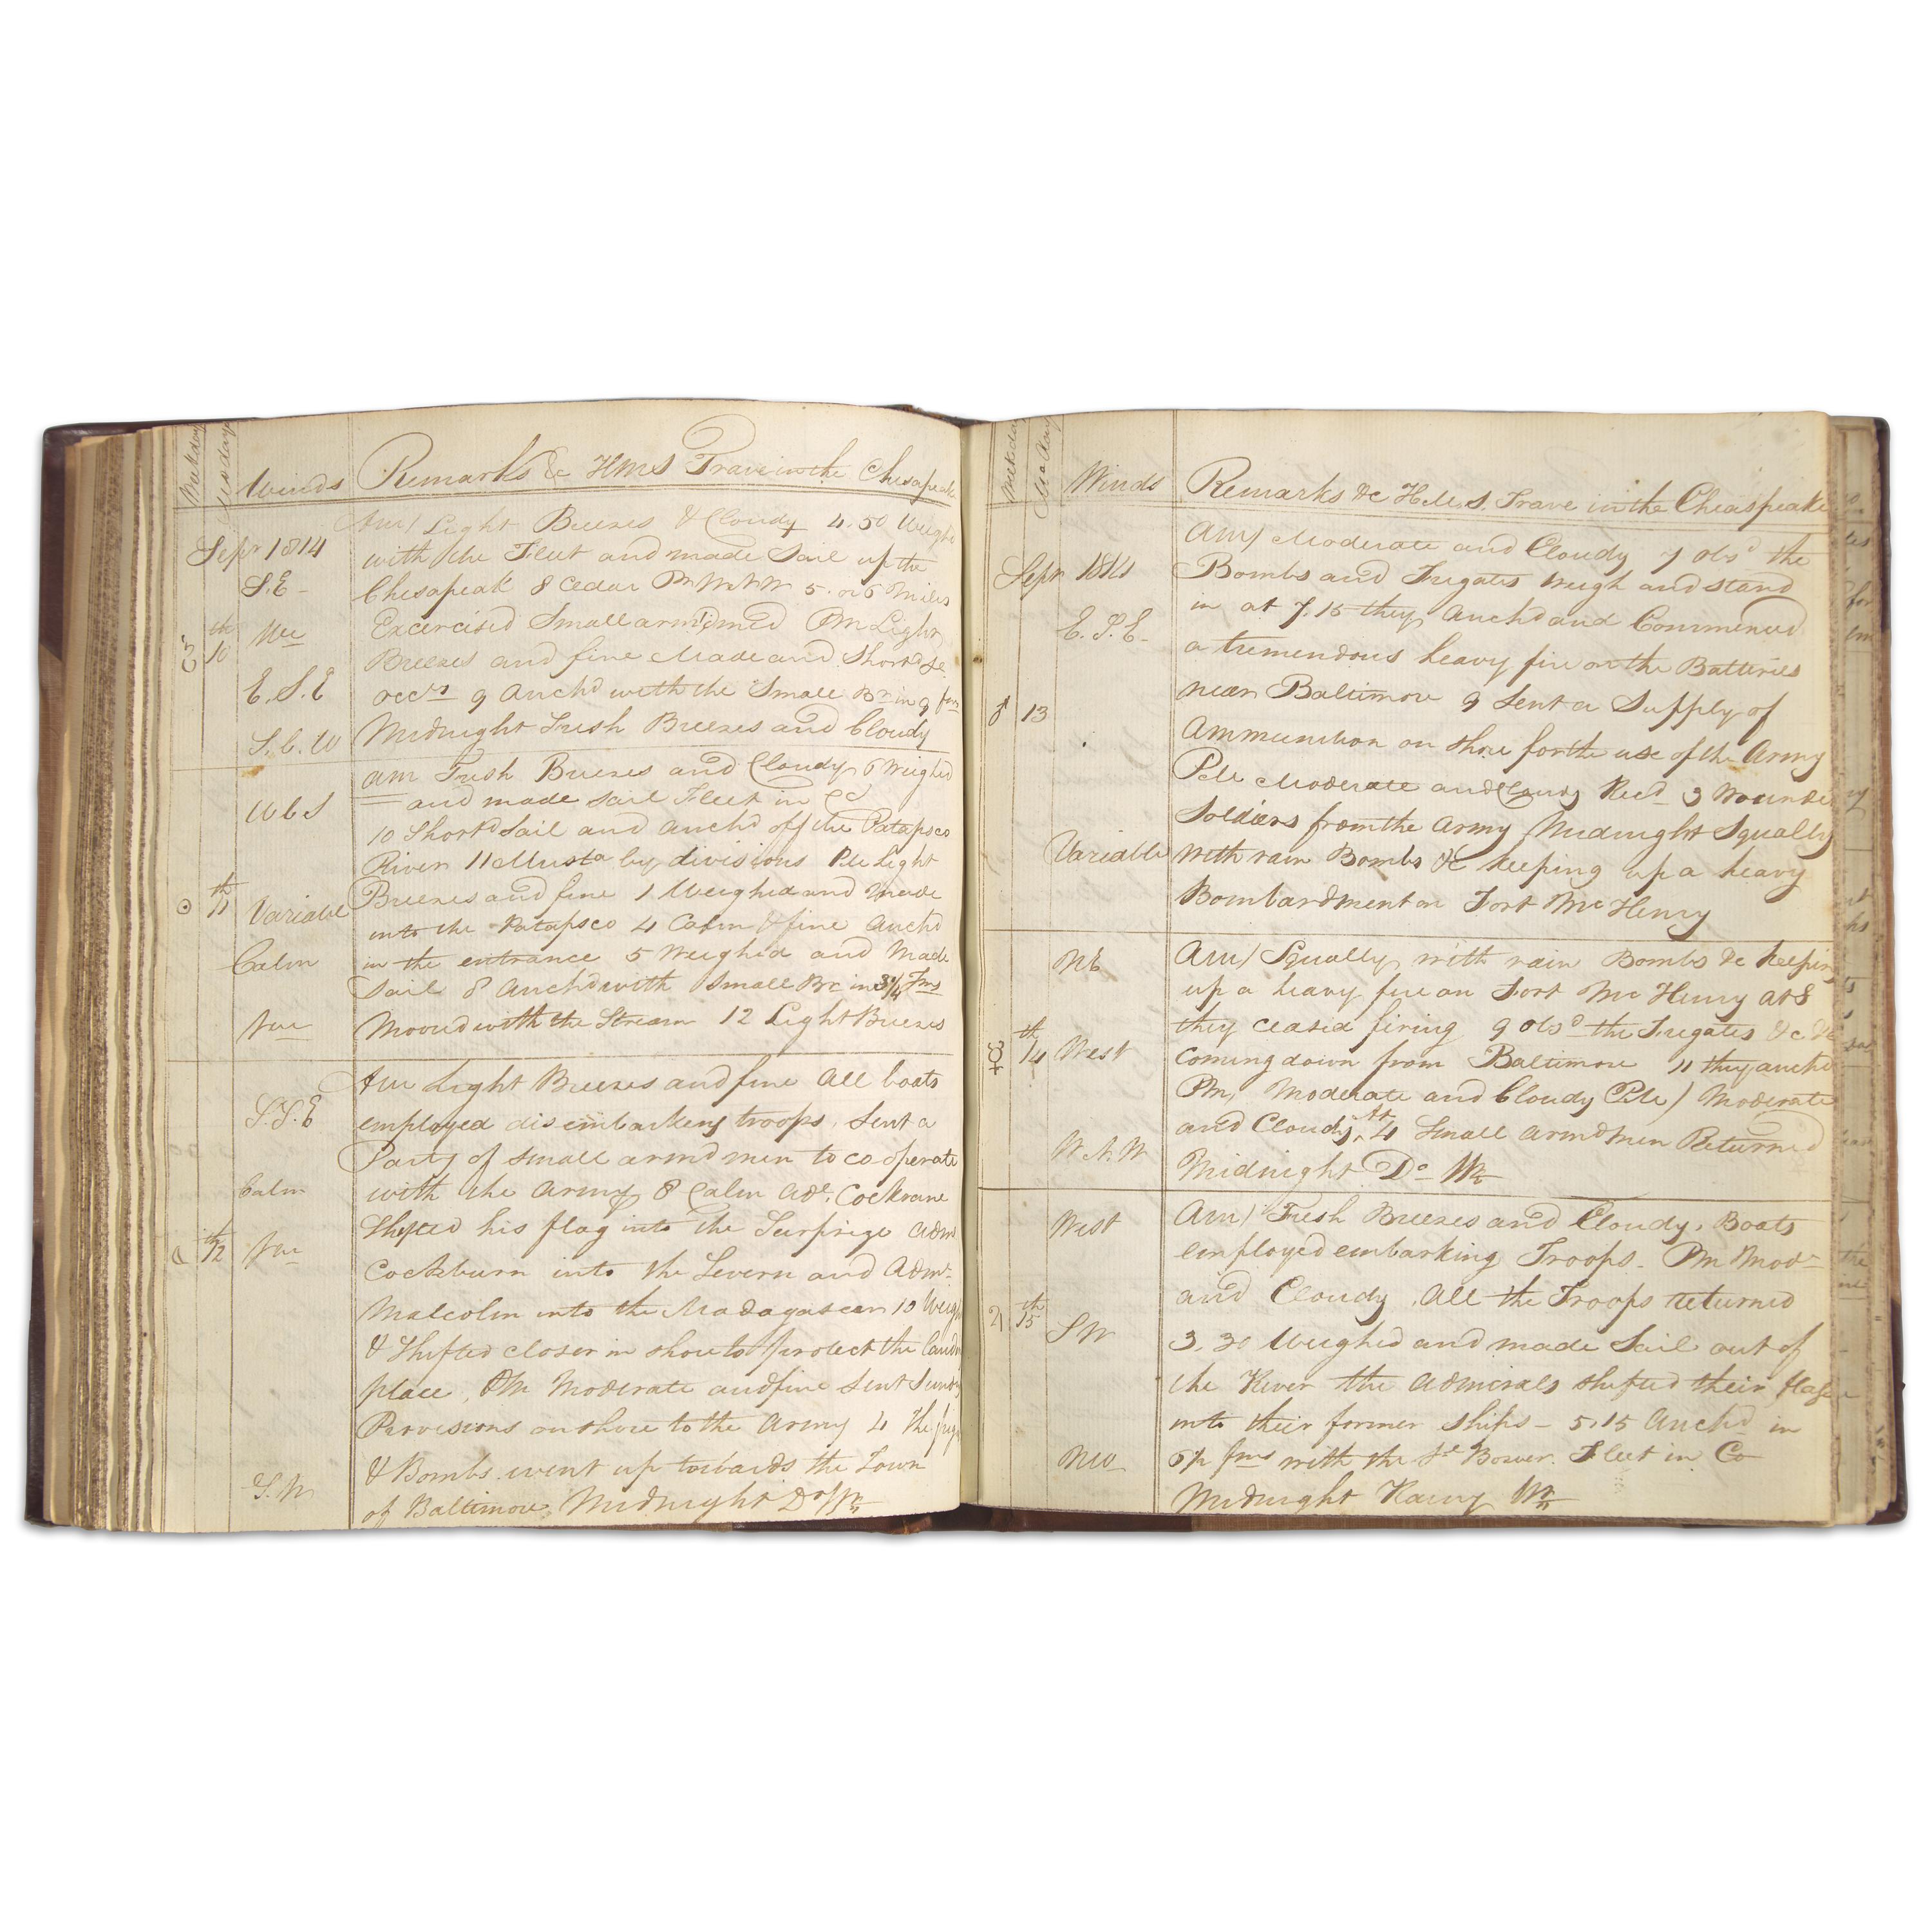 Week day
Sea day
Winds
Remarks &c HMS Trave in the Chesapeake
Sepr 1814
Am/ Light Breezes & Cloudy 4.50 Weighd
with the Fleet and made Sail up the
S.E
Chesapeak 8 Cedar Pt WNW 5 or 6 Miles
10th
Excercised Small armd med PM Light
Breezes and fine Made and Shortd Se
E.S.E
occly 9 Anchd with the Small Br in 9 fms
S.b.W
Midnight Fresh Breezes and Cloudy
am Fresh Breezes and Cloudy 6 Weighed
and made sail Fleet in Co
WbS
10 Shortd Sail and anchd off the Patapsco
River 11 Musta by divisions PM Light
☉ 11th
Variable
Breezes and fine 1 Weighed and made
into the Patapsco 4 Calm & fine Anchd
Calm
in the entrance 5 Weighed and Made
Sail 8 Anchd with Small Br in 3 1/4 Fms
Moord with the Stream 12 Light Breezes
Am Light Breezes and fine All boats
S.S.E
employed disembarking troops, Sent a
Party of small armd men to cooperate
Calm
with the Army 8 Calm Adl. Cockrane
12th
Shifted his flag into the Surprize Adml
Cockburn into the Severn and Adml
Malcolm into the Madagascar 10 Weighd
& Shifted closer in shore to protect the landg
place, PM Moderate and fine Sent Sundry
Provisions on shore to the Army 4 The frigs
& Bombs went up towards the Town
S.W
of Baltimore Midnight Do Wr
Week day
Sea day
Winds
Remarks &c H.M.S. Trave in the Cheaspeake
Sepr 1814
Am/ Moderate and Cloudy 7 obsd the
Bombs and Fregates weigh and stand
E.S.E
in at 7.15 they Anchd and Commenced
a tremendous heavy fire on the Batteries
♂ 13
near Baltimore 9 Sent a Supply of
Ammunition on shore for the use of the Army
PM Moderate and Cloudy Recd 3 Wounded
Soldiers from the Army Midnight Squally
Variable
with rain Bombs &c keeping up a heavy
Bombardment on Fort McHenry
NE
Am/ Squally with rain Bombs &c keeping
up a heavy fire on Fort McHenry at 8
they ceased firing 9 obsd the Fregates &c &c
☿ 14th
West
coming down from Baltimore 11 they anchd
Pm, Moderate and Cloudy PM/ Moderate
and Cloudy, At 4 Small armd men Returned
W.N.W
Midnight Do Wr
West
Am/ Fresh Breezes and Cloudy, Boats
employed embarking Troops. Pm Modr
♃ 15th
and Cloudy, All the Troops returned
SW
3.30 Weighed and made Sail out of
the River the Admirals shifted their flags
into their former Ships - 5.15 Anchd in
NW
6½ fms with the St Bower. Fleet in Co
Midnight Rainy Wr